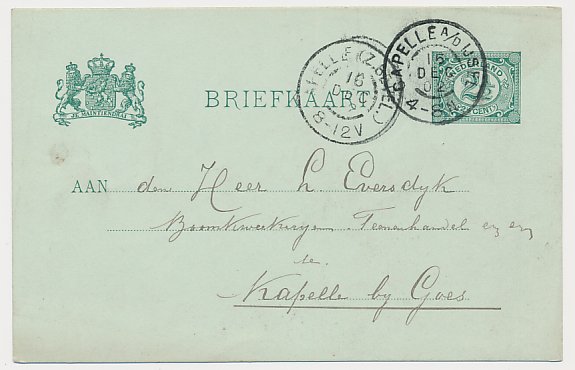 CAPELLE A/D IJSSEL
15
DEC
02
4-8N
KAPELLE (Z. BEVEL.)
16
DEC
8-12V
NEDERLAND
2½
CENT
JE MAINTIENDRAI
BRIEFKAART
AAN den Heer L Eversdyk
Boomkweekerijen Teenenhandel enz enz
te
Kapelle by Goes